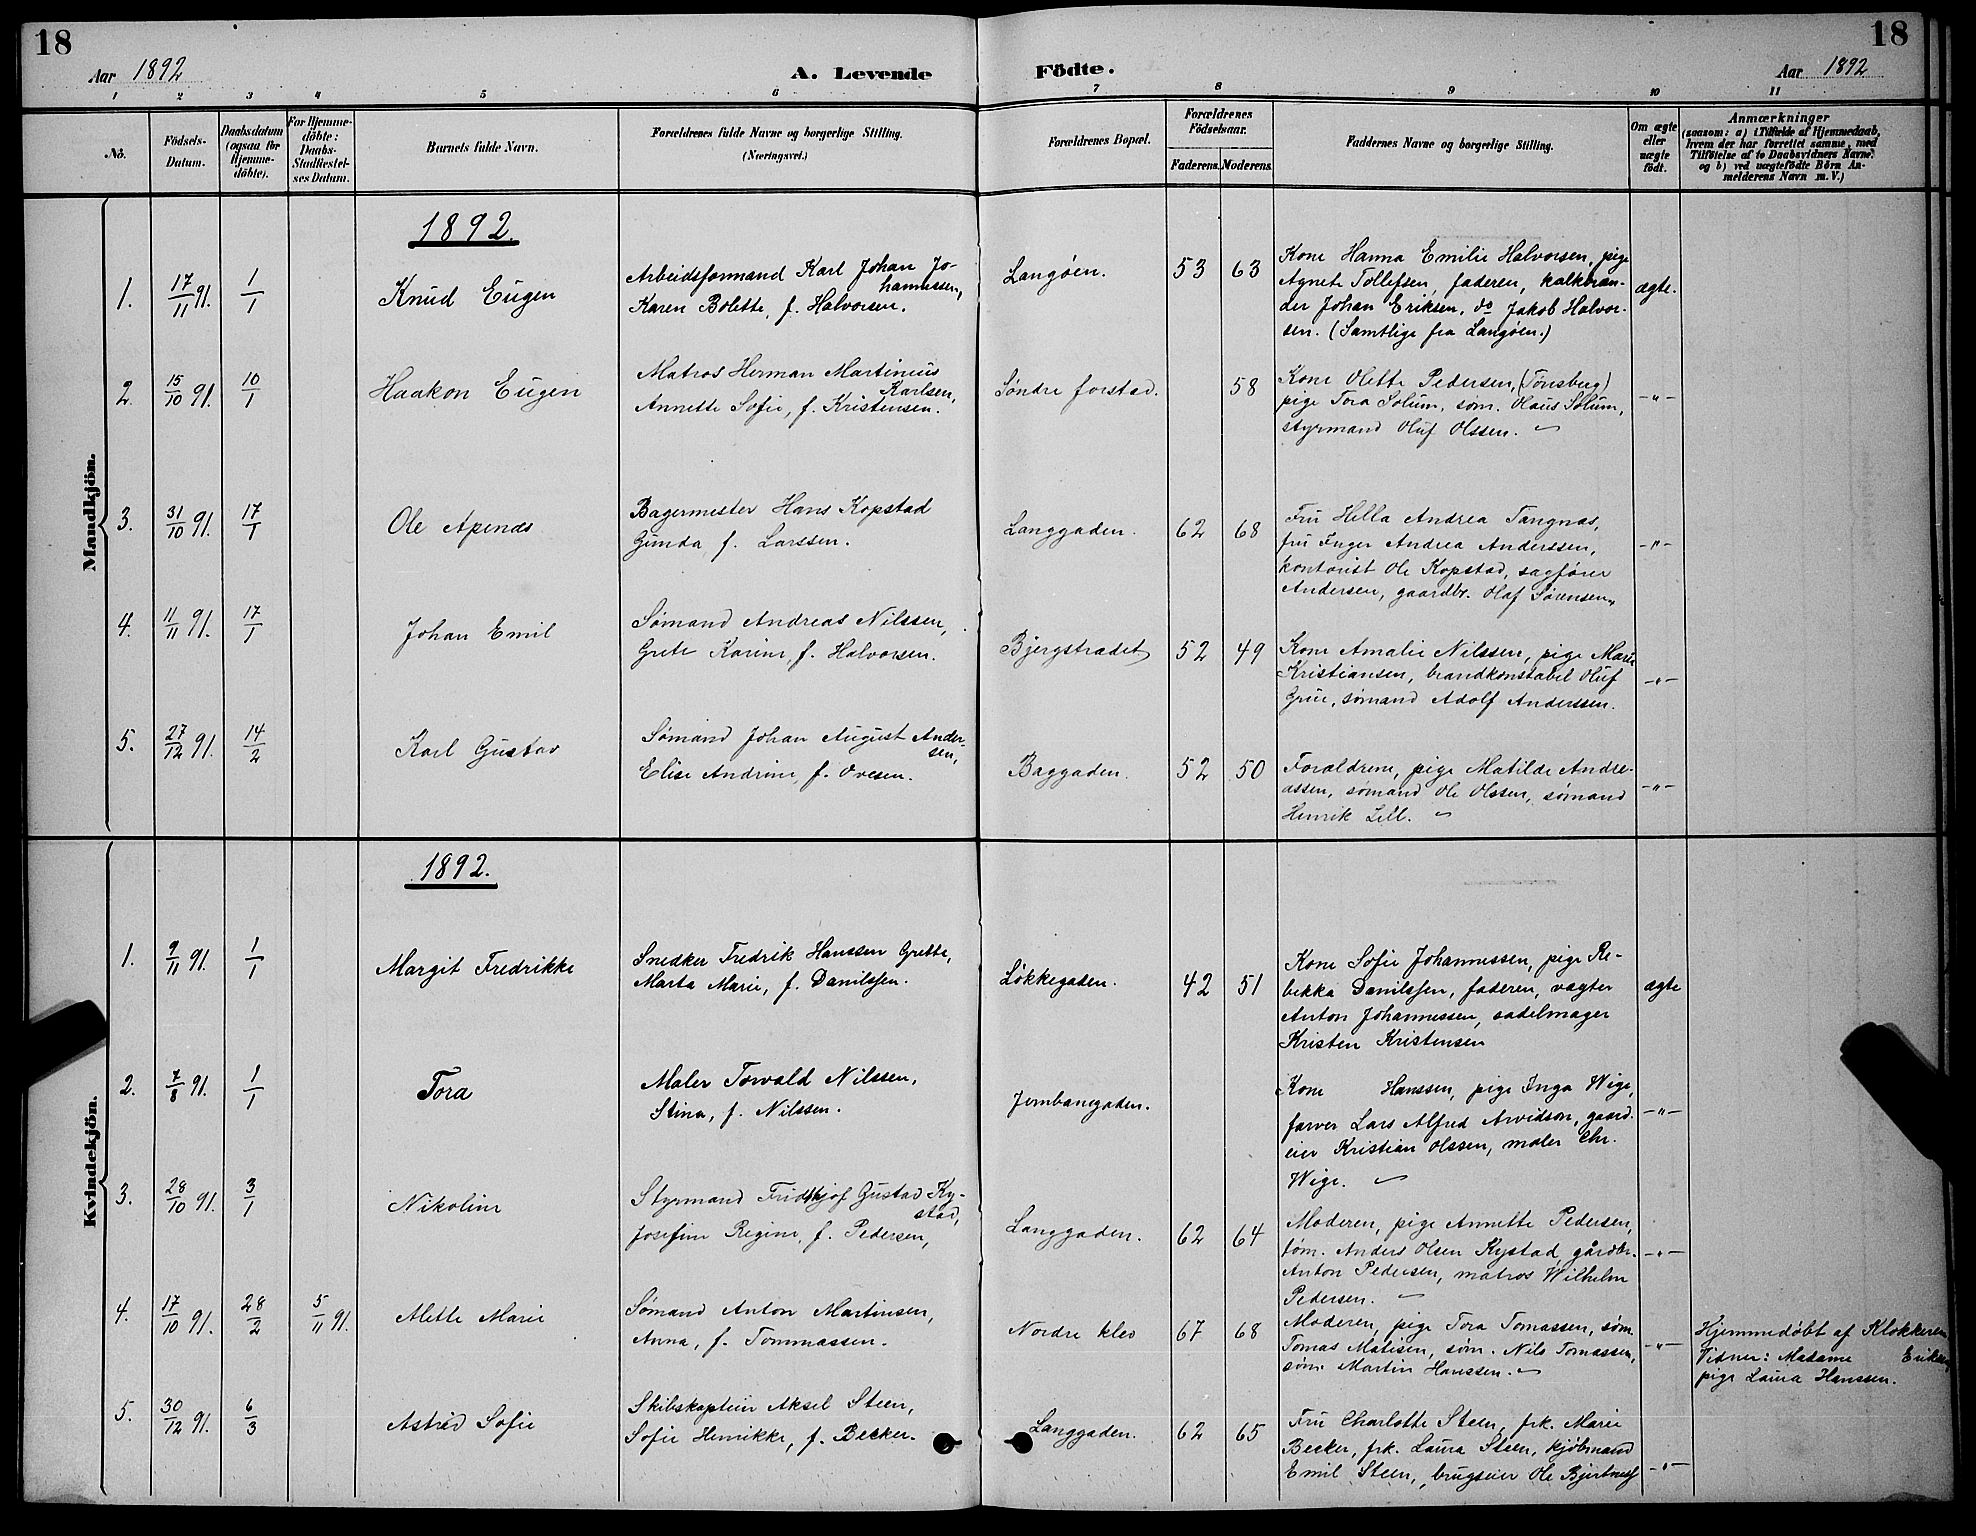 18
18
Aar 1892
A. Levende Födte.
Aar 1892
1 2 3 4 5 6 7 8 9 10 11
No.
Födsels-Datum.
Daabsdatum (ogsaa for Hjemme-döbte).
For Hjemme-döbte: Daabs-Stadfæstel-ses Datum.
Barnets fulde Navn.
Forældrenes fulde Navne og borgerlige Stilling. (Næringsvei.)
Forældrenes Bopæl.
Forældrenes Födselsaar.
Faderens. Moderens.
Faddernes Navne og borgerlige Stilling.
Om ægte eller uægte födt.
Anmærkninger
(saasom: a) i Tilfælde af Hjemmedaab,
hvem der har forrettet samme, med
Tilföielse af to Daabsvidners Navne;
og b) ved uægtefödte Börn An-
melderens Navn m. V.)
Mandkjön.
1892.
1. 17/11 91. 1/1
Knud Eugen
Arbeidsformand Karl Johan Jo-
hannessen,
Karen Bolette, f. Halvorsen.
Langøen.
53 63
Kone Hanna Emilie Halvorsen, pige
Agnete Tollefsen, faderen, kalkbræn-
der Johan Eriksen, do Jakob Halvor-
sen. (Samtlige fra Langøen.)
ægte.
2. 15/10 91. 10/1
Haakon Eugen
Matros Herman Martinius
Karlsen,
Annette Sofie, f. Kristensen.
Søndre forstad.
58
Kone Olette Pedersen, (Tønsberg)
pige Tora Solum, søm. Olaus Solum,
styrmand Oluf Olssen.
-"-
3. 31/10 91. 17/1
Ole Apenæs
Bagermester Hans Kopstad
Gunda f. Larssen.
Langgaden.
62 68
Fru Hella Andrea Tangnæs,
fru Inger Andrea Anderssen,
kontorist Ole Kopstad, sagfører
Andersen, gaardbr. Olaf Sørensen,
-"-
4. 11/11 91. 17/1
Johan Emil
Sømand Andreas Nilssen,
Grete Karine, f. Halvorsen.
Bjergstrædet
52 49
Kone Amalie Nilssen, pige Marie
Kristiansen, brandkonstabel Oluf
Grue, sømand Adolf Anderssen.
-"-
5. 27/12 91. 14/2
Karl Gustav
Sømand Johan August Ander-
sen,
Elise Andrine, f. Ovesen.
Baggaden.
52 50
Forældrene, pige Matilde Andre-
assen, sømand Ole Olssen, sømand
Henrik Lill.
-"-
Kvindekjön.
1892.
1. 9/11 91. 1/1
Margit Fredrikke
Snedker Fredrik Hanssen Grette,
Marta Marie, f. Danilssen.
Løkkegaden.
42 51
Kone Sofie Johannessen, pige Re-
bekka Danilssen, faderen, vægter
Anton Johannessen, sadelmager
Kristen Kristensen
ægte
2. 7/8 91. 1/1
Tora
Maler Torvald Nilssen,
Stina, f. Nilssen.
Jernbanegaden.
Kone Hanssen, pige Inga Wige,
farver Lars Alfred Arvidson, gaard-
eier Kristian Olssen, maler Chr.
Wige.
-"-
3. 28/10 91. 3/1
Nikoline
Styrmand Fridthjof Gustav Ky-
stad,
Josefine Regine, f. Pedersen,
Langgaden.
62 64
Moderen, pige Annette Pedersen,
tøm. Anders Olsen Kystad, gårdbr.
Anton Pedersen, matros Wilhelm
Pedersen.
-"-
4. 17/10 91. 28/2 5/11 91.
Alette Marie
Sømand Anton Martinsen,
Anna, f. Tommassen.
Nordre klev
67 68
Moderen, pige Tora Tomassen, søm.
Tomas Matisen, søm. Nils Tomassen,
søm. Martin Hanssen.
-"-
Hjemmedøbt af Klokkeren
Vidner: Madame Eriksen,
pige Laura Hanssen.
5. 30/12 91. 6/3
Astrid Sofie
Skibskaptein Aksel Steen,
Sofie Henrikke, f. Becker.
Langgaden.
62 65
Fru Charlotte Steen, frk. Marie
Becker, frk. Laura Steen, kjøbmand
Emil Steen, brugseier Ole Bjertnæs
-"-